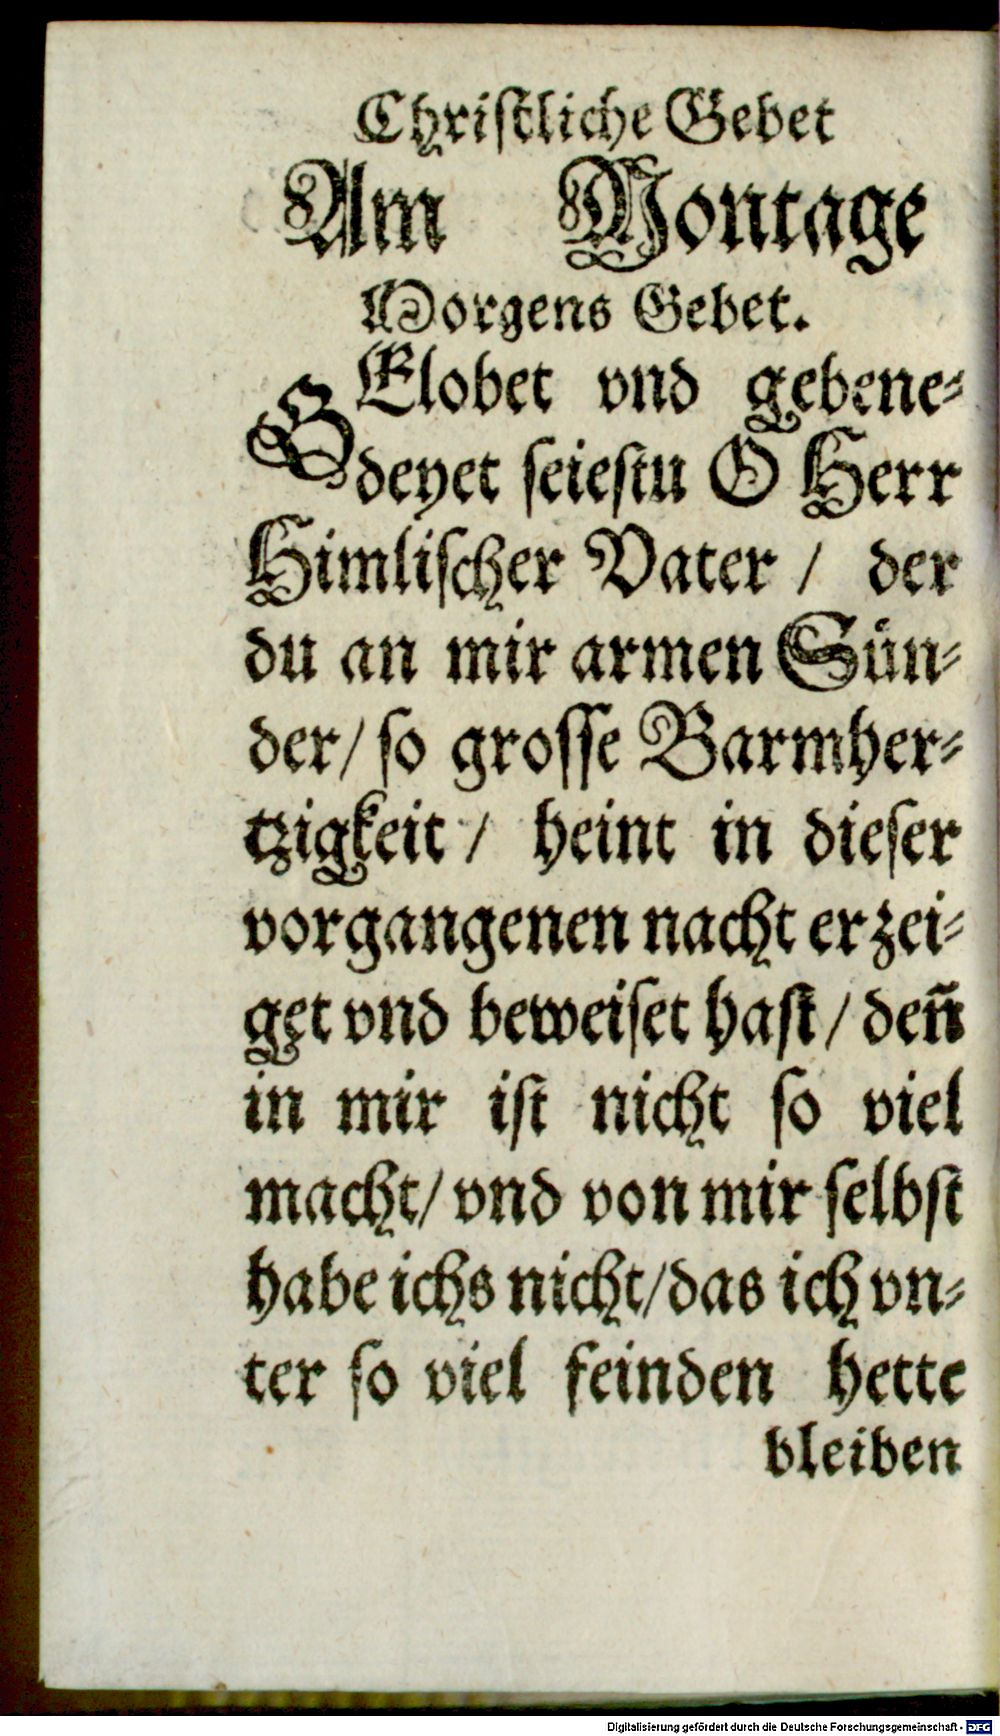 Chriſtliche Gebet
Am Montage
Morgens Gebet.
GElobet vnd gebene⸗
deyet ſeieſtu O Herr
Himliſcher Vater / der
du an mir armen Sün⸗
der/ ſo groſſe Barmher⸗
tzigkeit / heint in dieſer
vorgangenen nacht erzei⸗
get vnd beweiſet haſt / deñ
in mir iſt nicht ſo viel
macht/ vnd von mir ſelbſt
habe ichs nicht/das ich vn⸗
ter ſo viel feinden hette
bleiben
Digitalisierung gefördert durch die Deutsche Forschungsgemeinschaft - DFG